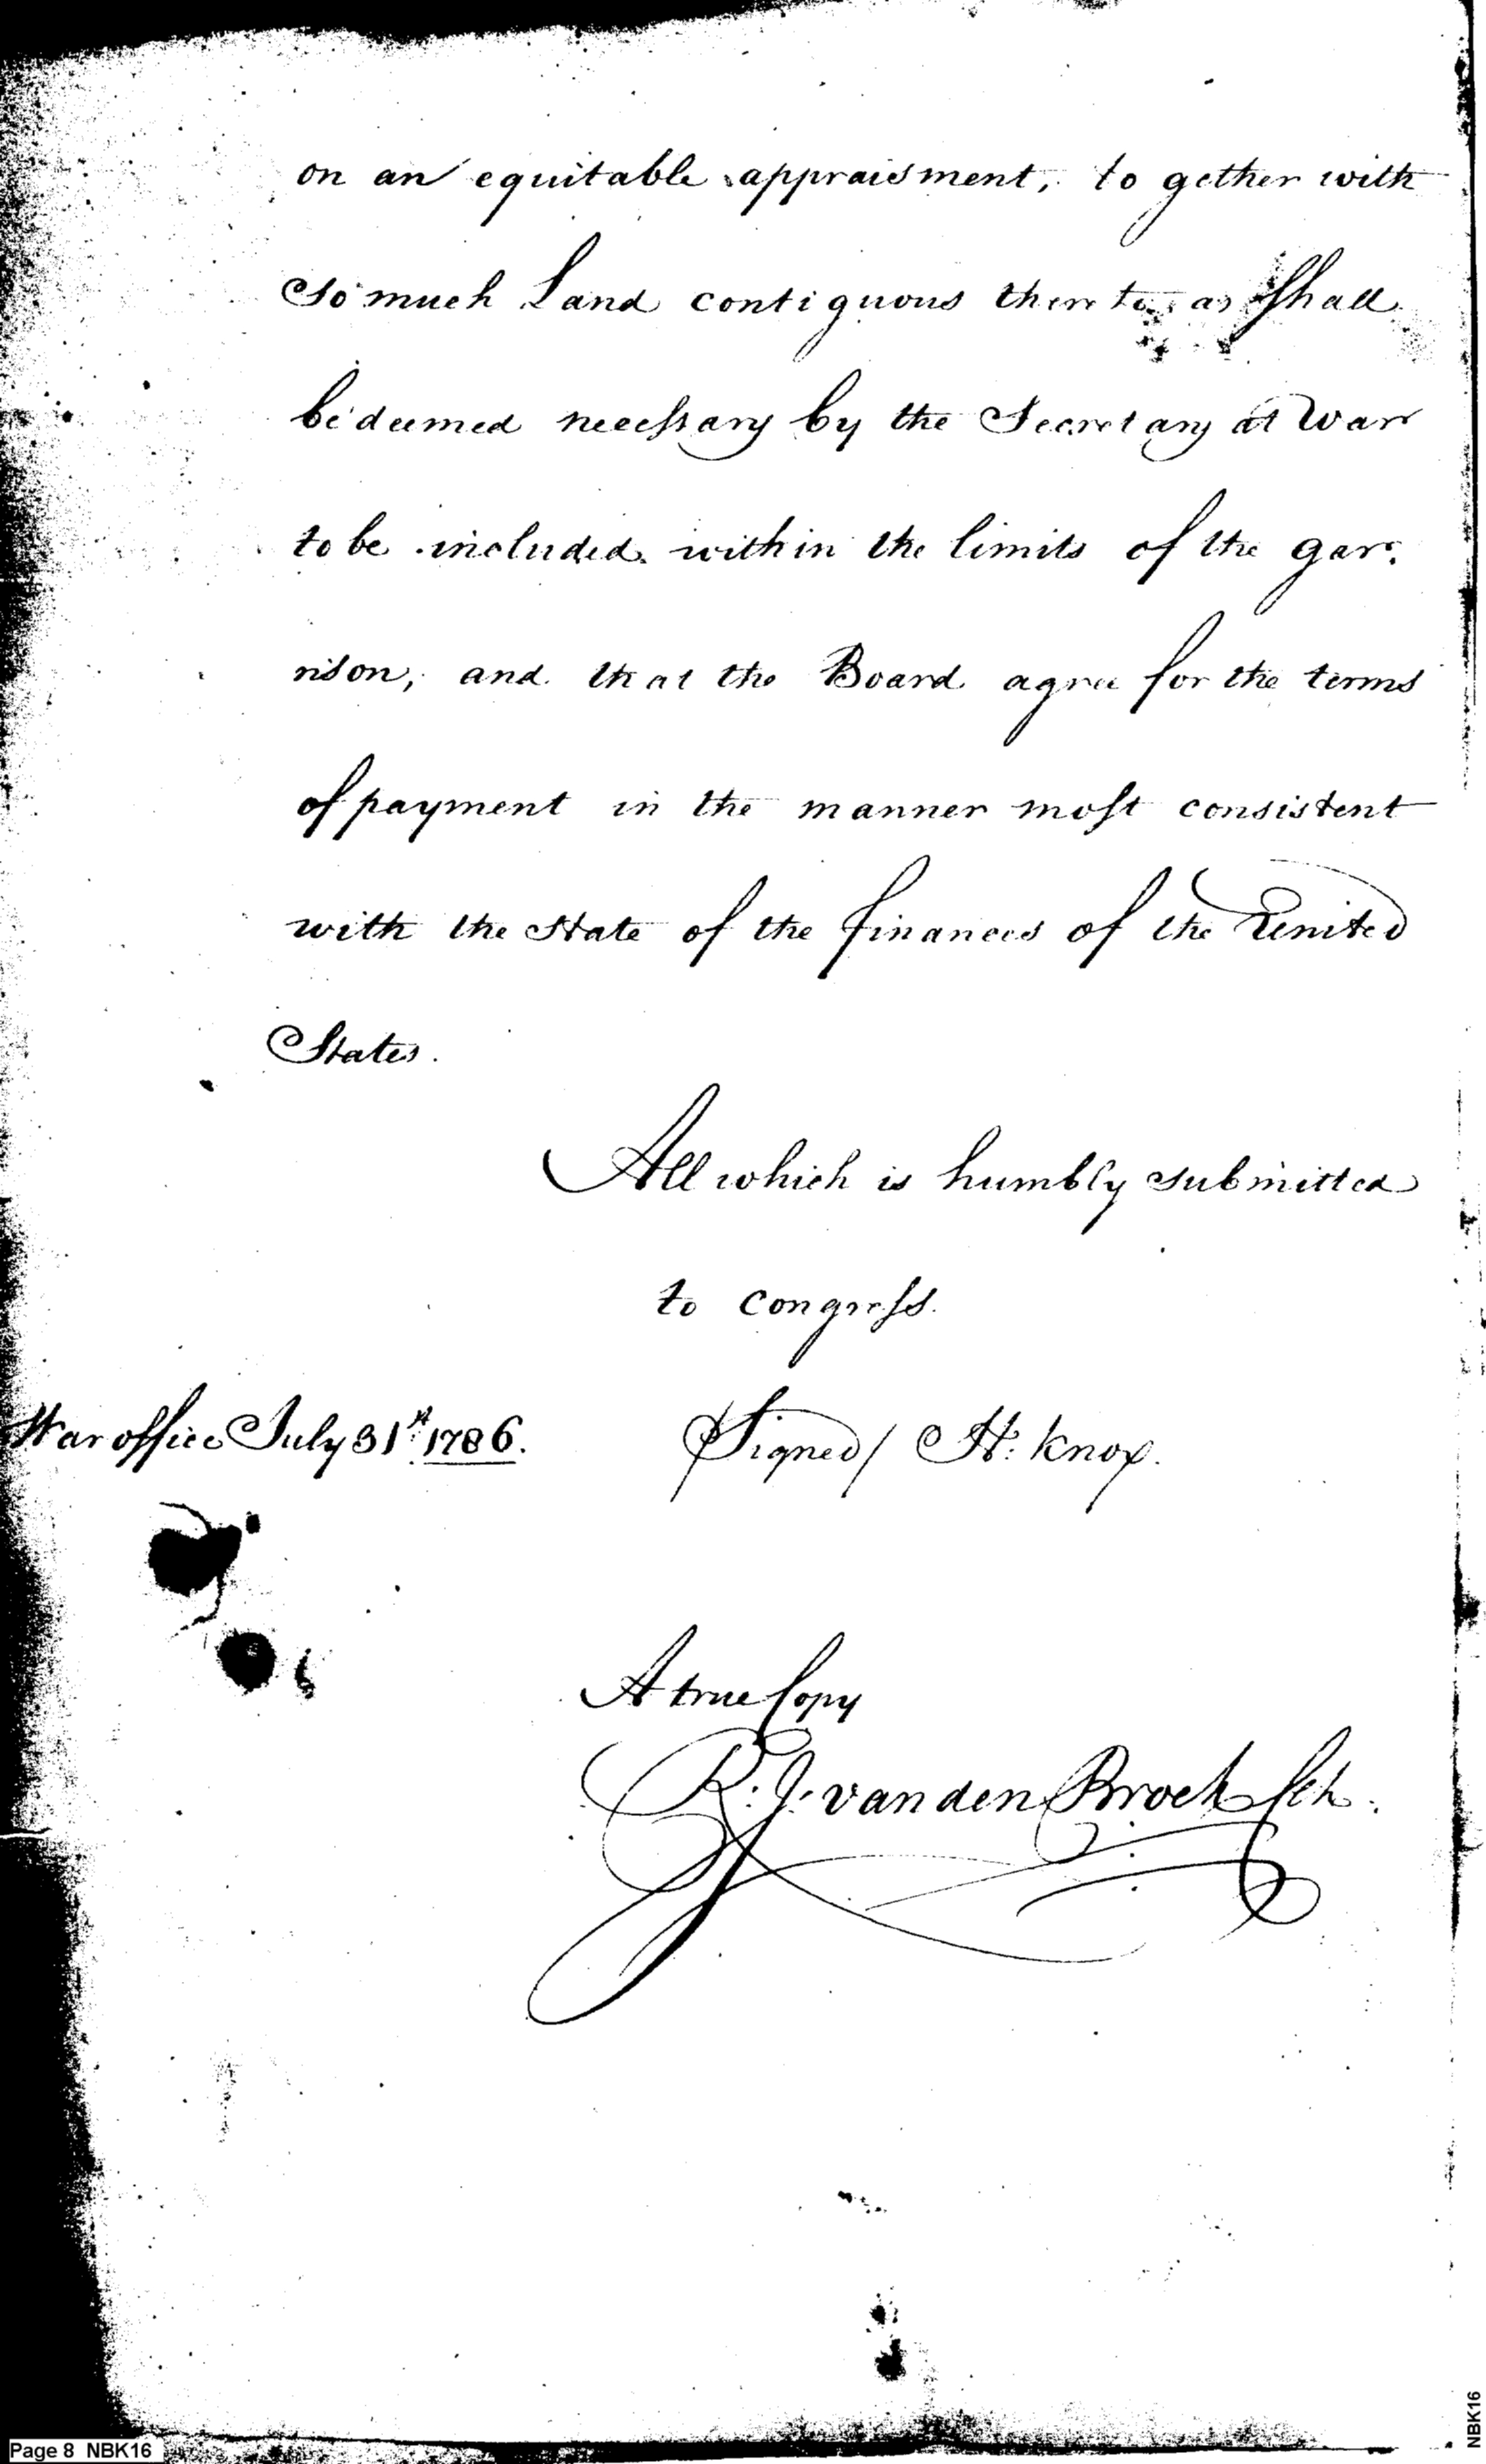 on an equitable appraisment, to gether with
So much Land contiguous thereto, as Shall
be deemed necessary by the Secretary at War
to be included within the limits of the gar:
rison, and that the Board agree for the terms
of payment in the manner most consistent
with the State of the finances of the United
States.
All which is humbly submitted
to Congress.
War office July 31st 1786.
Signed/ H: Knox.
A true Copy
R. J. van den Broek
Page 8 NBK16
NBK16